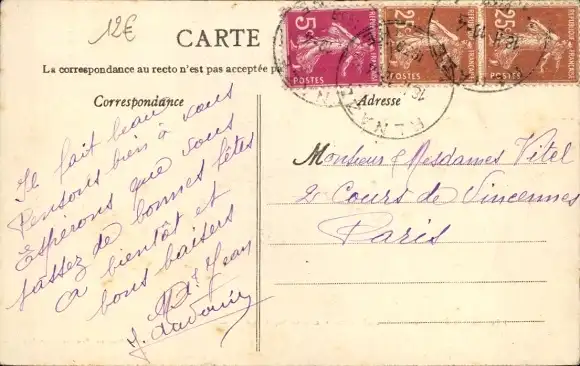 12€
CARTE
La correspondance au recto n'est pas acceptée pa
Correspondance
Adresse
5c
POSTES
25c
POSTES
25c
POSTES
Il fait beau
Pensons bien à vous
Espérons que vous
passez de bonnes fêtes
a bientôt et
bons baisers
Jean
Monsieur & Mesdames Vitel
2 Cours de Vincennes
Paris